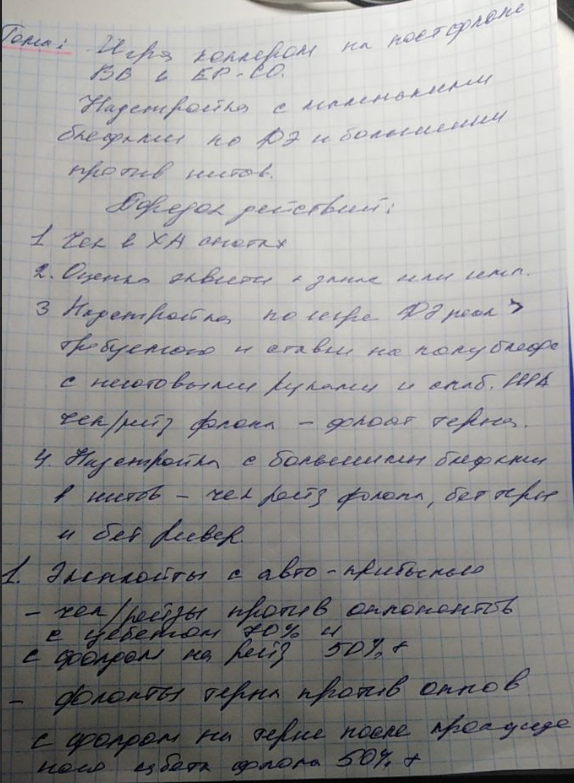 Тема: Игра коллером на постфлопе
ВВ в ЕР-СО.
Надстройка с маленькими
блефами по ФЭ и большими
против нитов.
Порядок действий:
1 Чек в ХА спотах
2. Оценка эквити + или имп.
3 Надстройка по игре ФЭ реал >
требуемого и ставки на полублеф
с неготовыми руками и слаб.
чек/рейз флопа - флоат терна.
4. Надстройка с большими блефами
в нитов - чек рейз флопа, бет терн
и бет ривер.
1. Эксплойты с авто-прибылью
- чек/рейзы против оппонентов
с цебетом 70% и
с фолдом на рейз 50% +
- флоаты терна против оппов
с фолдом на терне после
ного сбета флопа 50% +